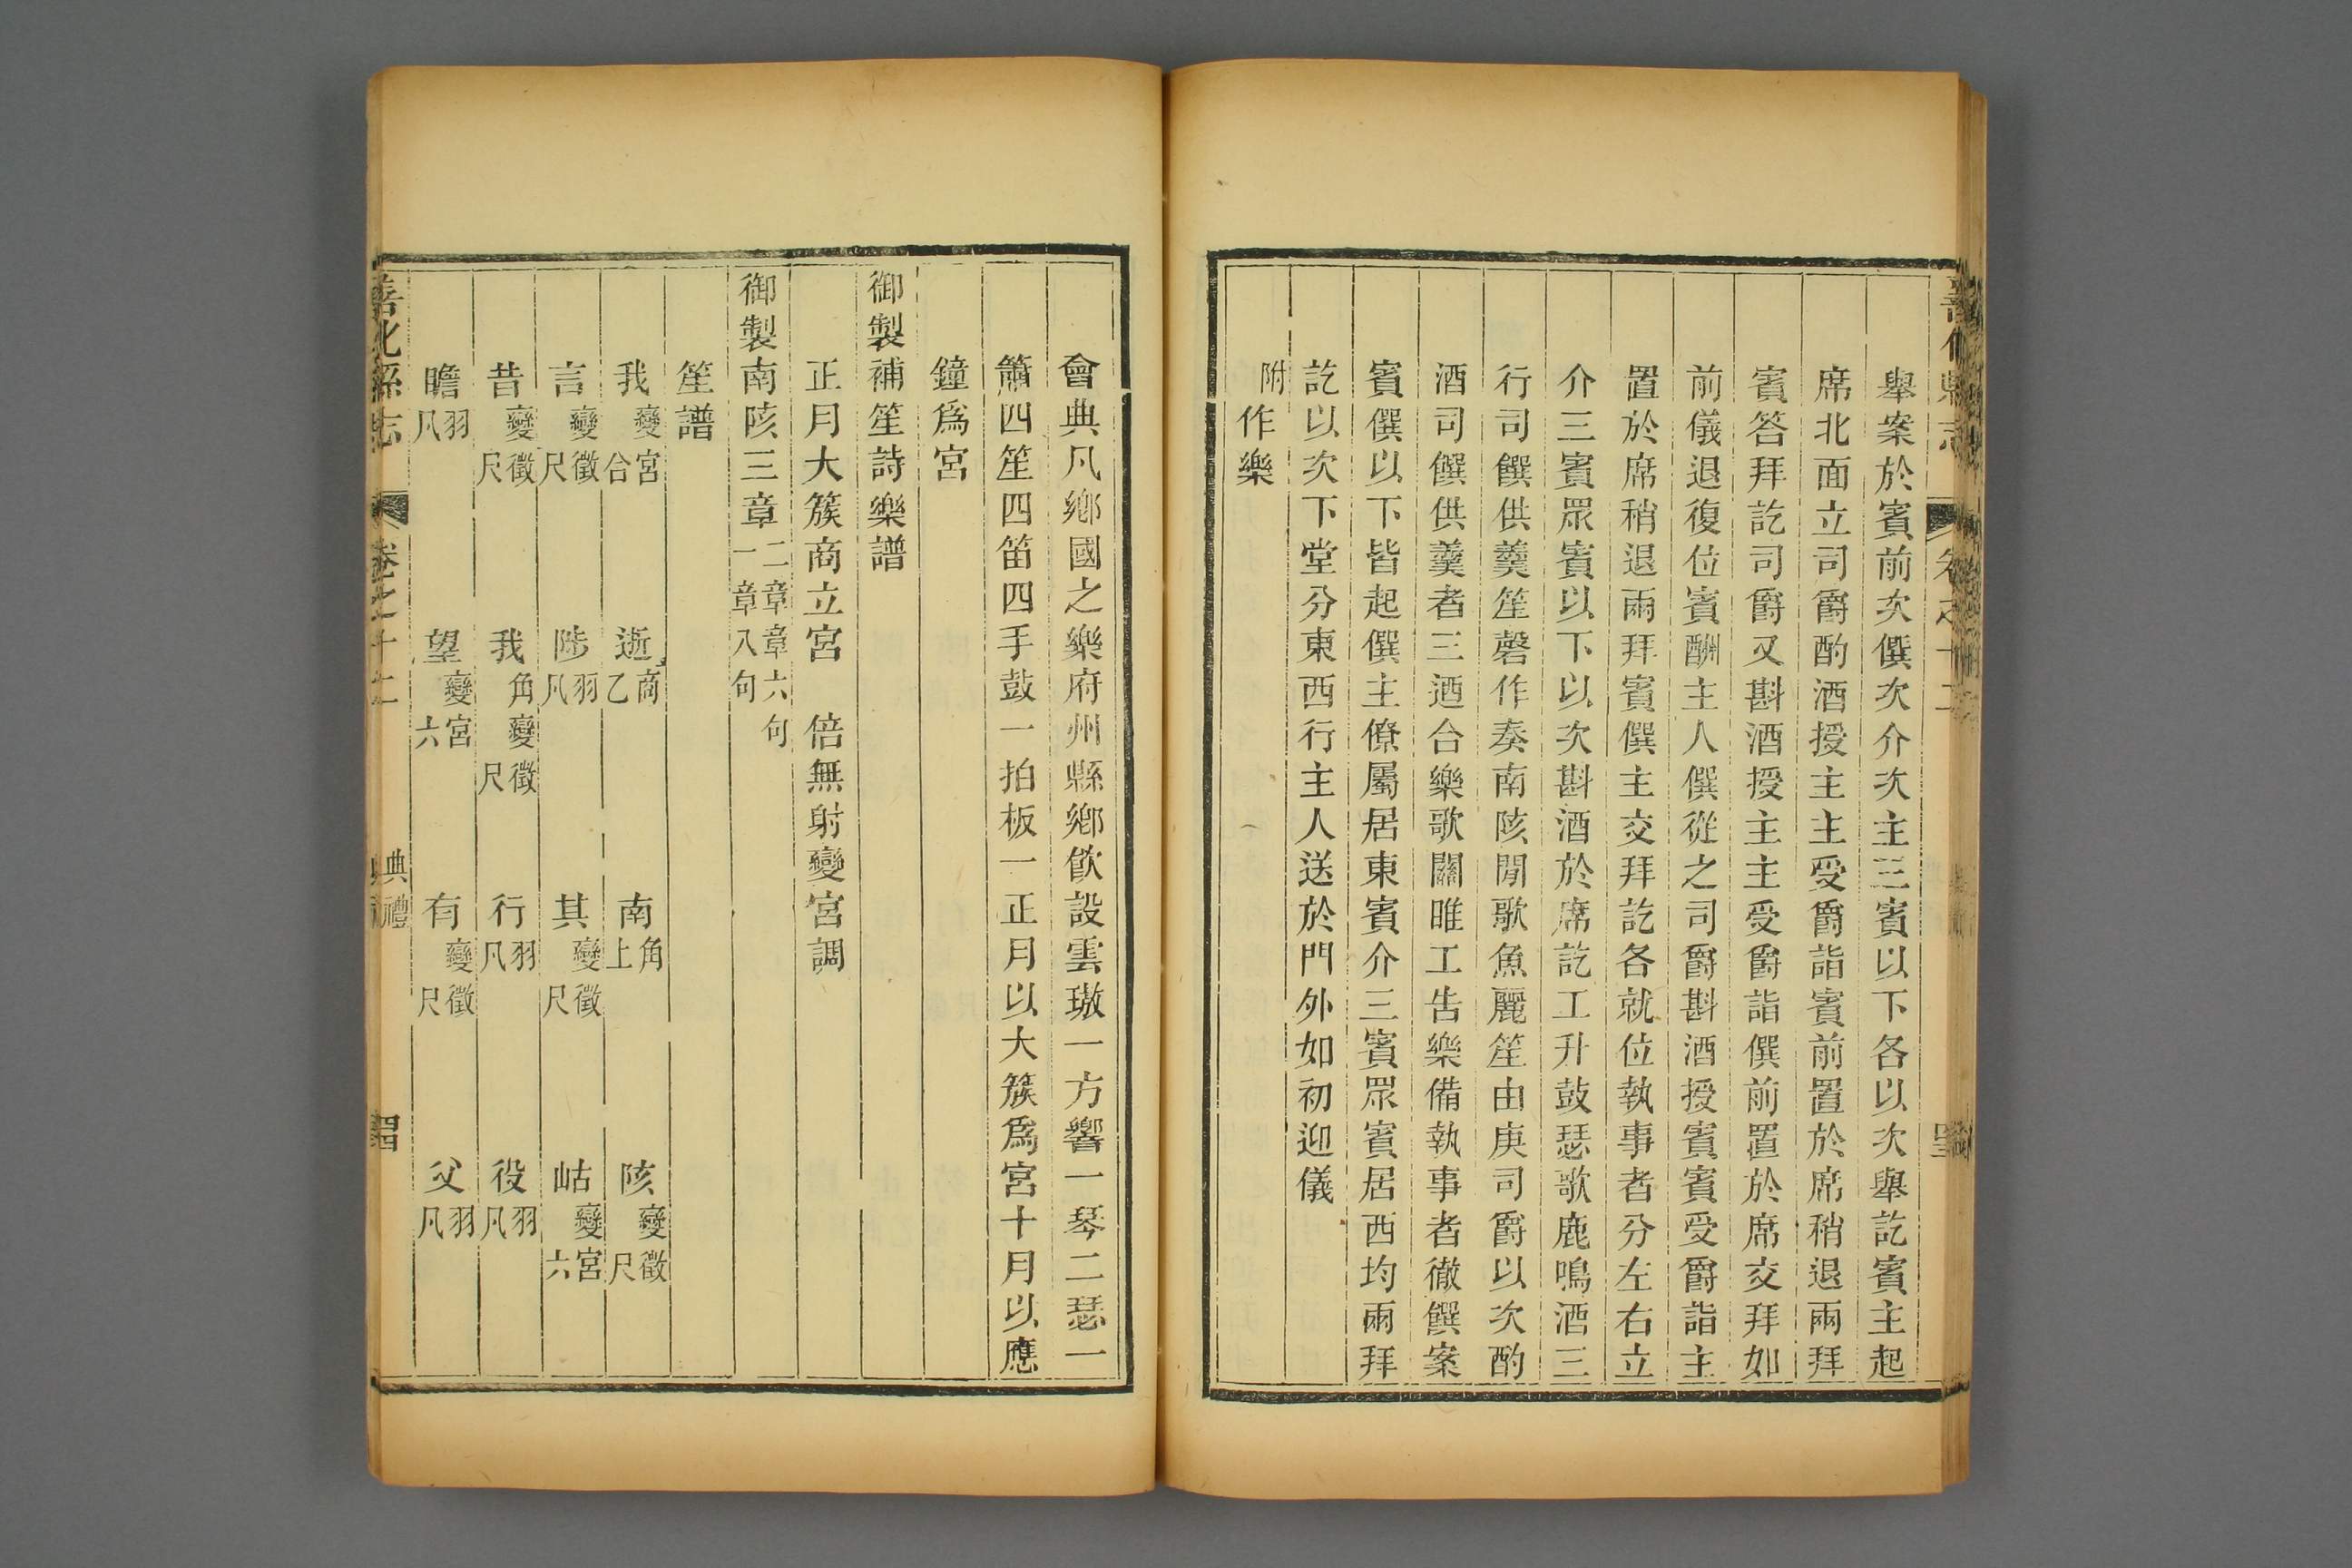 舉案於賓前次僎次介次主三賓以下各以次舉訖賓主起
席北面立司爵酌酒授主主受爵詣賓前置於席稍退兩拜
賓答拜訖司爵又斟酒授主主受爵詣僎前置於席交拜如
前儀退復位賓酬主人僎從之司爵斟酒授賓賓受爵詣主
置於席稍退兩拜賓僎主交拜訖各就位執事者分左右立
介三賓眾賓以下以次斟酒於席訖工升鼓瑟歌鹿鳴酒三
行司饌供羹笙磬作奏南陔閒歌魚麗笙由庚司爵以次酌
酒司饌供羹者三迺合樂歌關雎工告樂備執事者徹饌案
賓僎以下皆起僎主僚屬居東賓介三賓眾賓居西均兩拜
訖以次下堂分東西行主人送於門外如初迎儀
附作樂
會典凡鄉國之樂府州縣鄉飲設雲璈一方響一琴二瑟一
簫四笙四笛四手鼓一拍板一正月以大簇為宮十月以應
鐘為宮
御製補笙詩樂譜
正月大簇商立宮 倍無射變宮調
御製南陔三章 二章章六句 一章八句
笙譜
我 變宮合 逝 商乙 南 角上 陔 變徵尺
言 變徵尺 陟 羽凡 其 變徵尺 岵 變宮六
昔 變徵尺 我 角變徵尺 行 羽凡 役 羽凡
瞻 羽凡 望 變宮六 有 變徵尺 父 羽凡
善化縣志 卷之十二 典禮